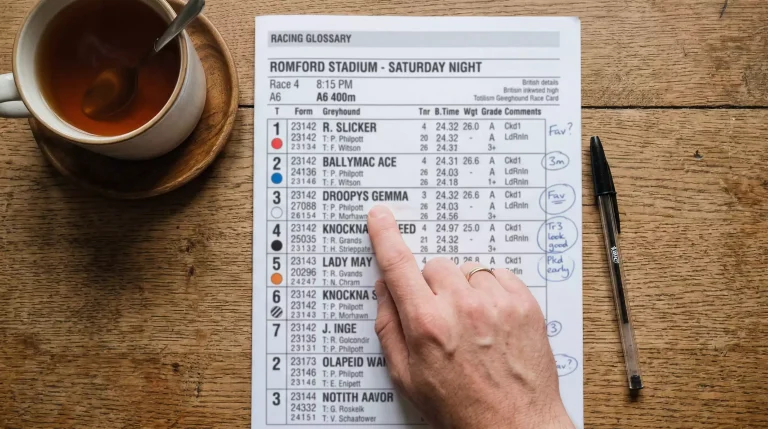 RACING GLOSSARY
ROMFORD STADIUM - SATURDAY NIGHT
Race 4 8:15 PM British details
British inkwood high
A6 A6 400m Totlism Greeghound Race Card
T Form Greyhound Tnr B.Time Wgt Grade Comments
1 23142 R. SLICKER 4 24.32 26.0 A Ckd1 Fav?
23142 T: P. Philpott 20 24.32 - A LdRnIn
23134 T: F. Witson 26 24.31 3+
2 23142 BALLYMAC ACE 4 24.31 26.6 A Ckd1 3m
24136 T: P. Philpott 26 24.03 - A LdRnIn
23146 T: F. Witson 26 24.18 1+ LdRnIn
3 23142 DROOPYS GEMMA 3 24.32 26.6 A Ckd1 Fav
27088 T: P. Philpott 26 24.03 - A LdRnIn
26154 T: P. Morhawn 26 24.56 3+
4 23142 KNOCKNA EED 4 24.97 25.0 A Ckd1 Tr3 look good
25035 T: R. Grands 21 24.32 - A LdRnIn
23132 T: H. Strieppate 26 24.38 3+
5 23143 LADY MAY 4 26.8 A Ckd1 Pkd early
20296 T: R. Gvands
24247 T: N. Chram
6 23142 KNOCKNA S
23142 T: P. Philpott
23143 T: P. Morhawn
7 23142 J. INGE 3
23135 T: R. Golcondir
23131 T: P. Philpott
2 23173 OLAPEID WA
23146 T: P. Philpott
23146 T: E. Enipett
3 23144 NOTITH AAVOR
24332 T: G. Roskeik
24151 T: V. Schaatower